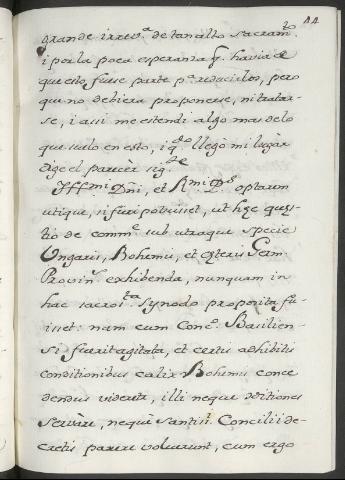 44
grande irrev.ª de tan alto sacram.to
i por la poca esperanza q. havia de
que esto fuese parte p.ª reducirlos, pero
que no debiera proponerse, ni tratar-
se, i assi me estendi algo mas de lo
que suelo en esto, i q.do llegò mi lugàr
dige el parecèr sig.te
Illmi Dñi, et Rmi P.s optarem
utique, si fieri potuisset, ut hæc quæs-
tio de comm.e sub utraque specie
Ungaris, Bohemis, et cæteris Germ.
Provin.s exhibenda, nunquam in
hac sacros.ta Synodo proposita fu-
isset: nam cum Conc.º Basilien-
si fuerit agitata, et certis adhibitis
conditionibus calix Bohemis conce
dendus viderit, illi neque conditiones
servàre, nequè santissi. Concilii de-
cretis parere voluerunt, cum ergo